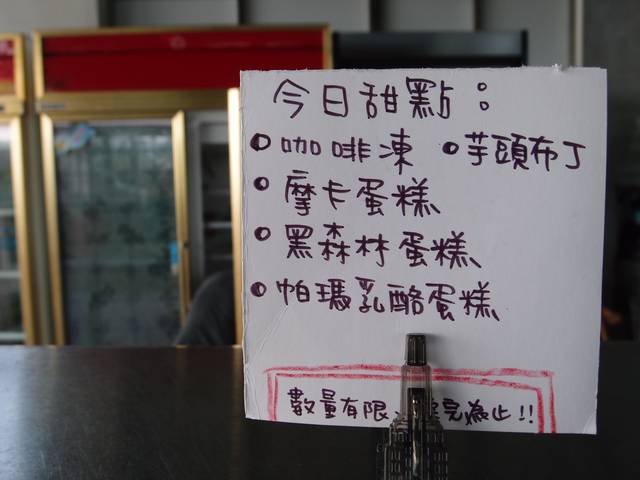 今日甜點：
咖啡凍 芋頭布丁
摩卡蛋糕
黑森林蛋糕
帕瑪乳酪蛋糕
數量有限、完為止!!